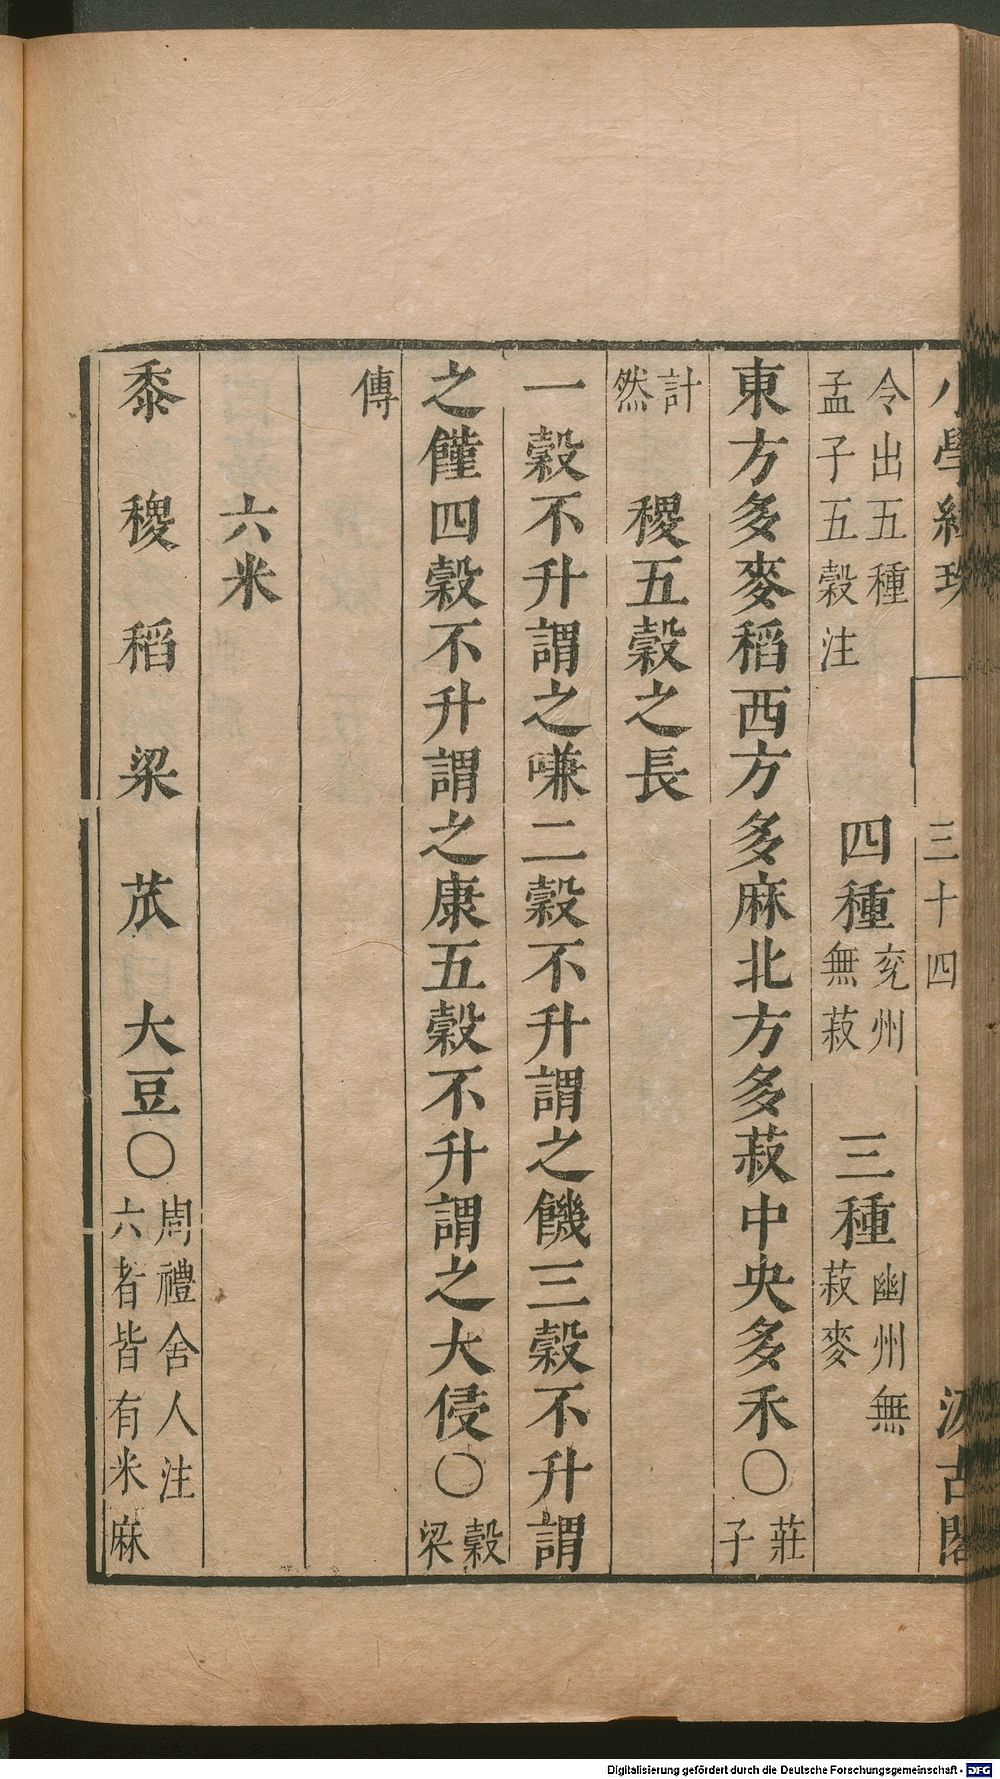 小學紺珠 三十四 汲古閣
令出五種
孟子五穀注
四種
兗州
無菽
三種
幽州無
菽麥
東方多麥稻西方多麻北方多菽中央多禾〇
莊
子
計
然
稷五穀之長
一穀不升謂之嗛二穀不升謂之饑三穀不升謂
之饉四穀不升謂之康五穀不升謂之大侵〇
穀
梁
傳
六米
黍 稷 稻 梁 苽 大豆〇
周禮舍人注
六者皆有米麻
Digitalisierung gefördert durch die Deutsche Forschungsgemeinschaft - DFG